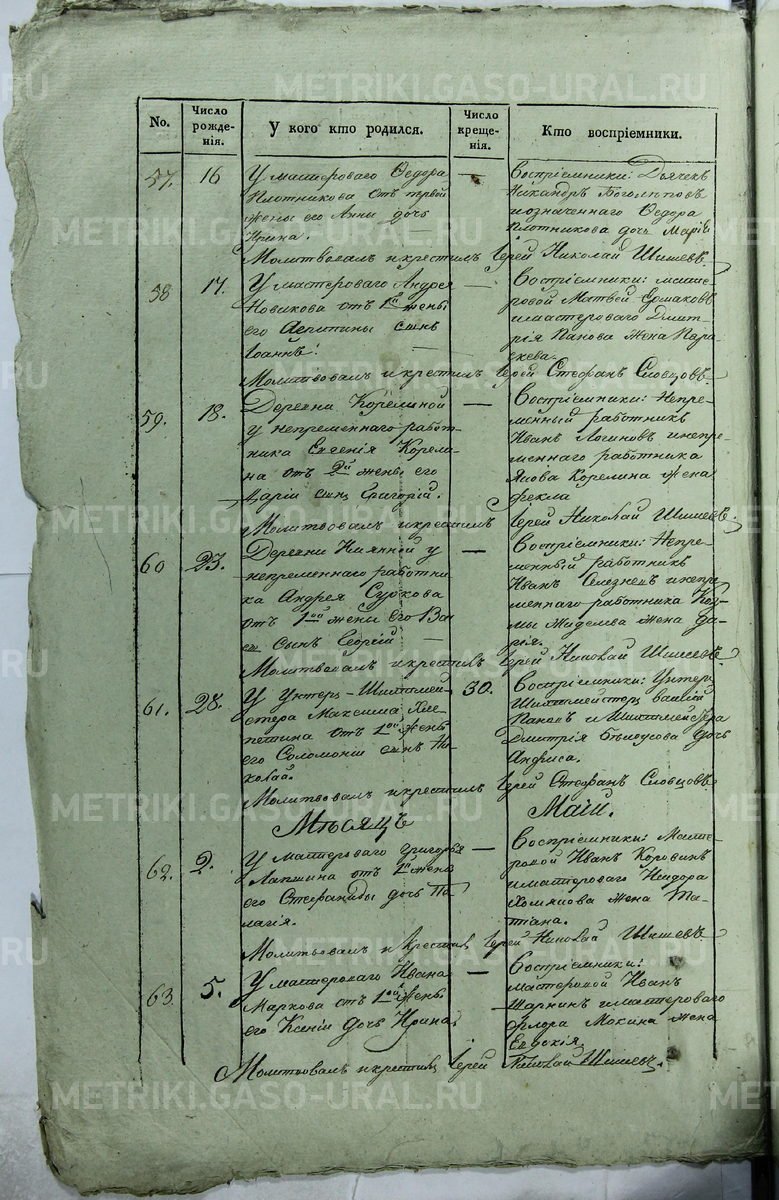 No.
Число рожде-нія.
У кого кто родился.
Число креще-нія.
Кто воспріемники.
57.
16
У мастероваго Ѳедора
Плотникова отъ первой
жены его Анны дочь
Ирина.
—
Воспріемники: Дьячекъ
Никандръ
и означеннаго Ѳедора
Плотникова дочь Марія
Молитвовалъ и крестилъ Іерей Николай Шишевъ.
58
17.
У мастероваго Андрея
Новикова отъ 1ой жены
его сынъ
Іоаннъ.
—
Воспріемники: масте-
ровой Матвей Ермаковъ
и мастероваго Дмит-
рія Панова жена Пара-
скева.
Молитвовалъ и крестилъ Іерей Стефанъ Словцовъ.
59.
18.
Деревни Корелиной
у непременнаго работ-
ника Евгенія Корели-
на отъ 2й жены его
Дарій сынъ Григорій.
—
Воспріемники: Непре-
менный работникъ
Иванъ Логиновъ и непре-
меннаго работника
Якова Корелина жена
Фекла
Молитвовалъ и крестилъ Іерей Николай Шишевъ.
60
23.
Деревни у
непременнаго работни-
ка Андрея Суркова
отъ 1ой жены его
сынъ Георгій
—
Воспріемники: Непре-
менный работникъ
Иванъ Селезневъ и непре-
меннаго работника Коз-
мы жена Да-
рія.
Молитвовалъ и крестилъ Іерей Николай Шишевъ.
61.
28.
У Унтеръ-Шихтмей-
стера Максима
отъ 1ой жены
его Соломоніи сынъ Ни-
колай.
30.
Воспріемники: Унтеръ
Шихтмейстеръ Василій
Пановъ и Шихтмейстера
Дмитрія дочь
Молитвовалъ и крестилъ Іерей Стефанъ Словцовъ.
Мѣсяцъ Маій.
62.
2.
У мастероваго Григорья
Лапшина отъ 1й жены
его Стефаниды дочь Пе-
лагія.
—
Воспріемники: Масте-
ровой Иванъ Коровинъ
и мастероваго Исидора
Хомякова жена Та-
тіана.
Молитвовалъ и крестилъ Іерей Николай Шишевъ.
63.
5.
У мастероваго Ивана
Маркова отъ 1ой жены
его Ксеніи дочь Ирина.
—
Воспріемники:
мастеровой Иванъ
Шарнинъ и мастероваго
Флора Мокина жена
Евдокія
Молитвовалъ и крестилъ Іерей Николай Шишевъ.
METRIKI.GASO-URAL.RU